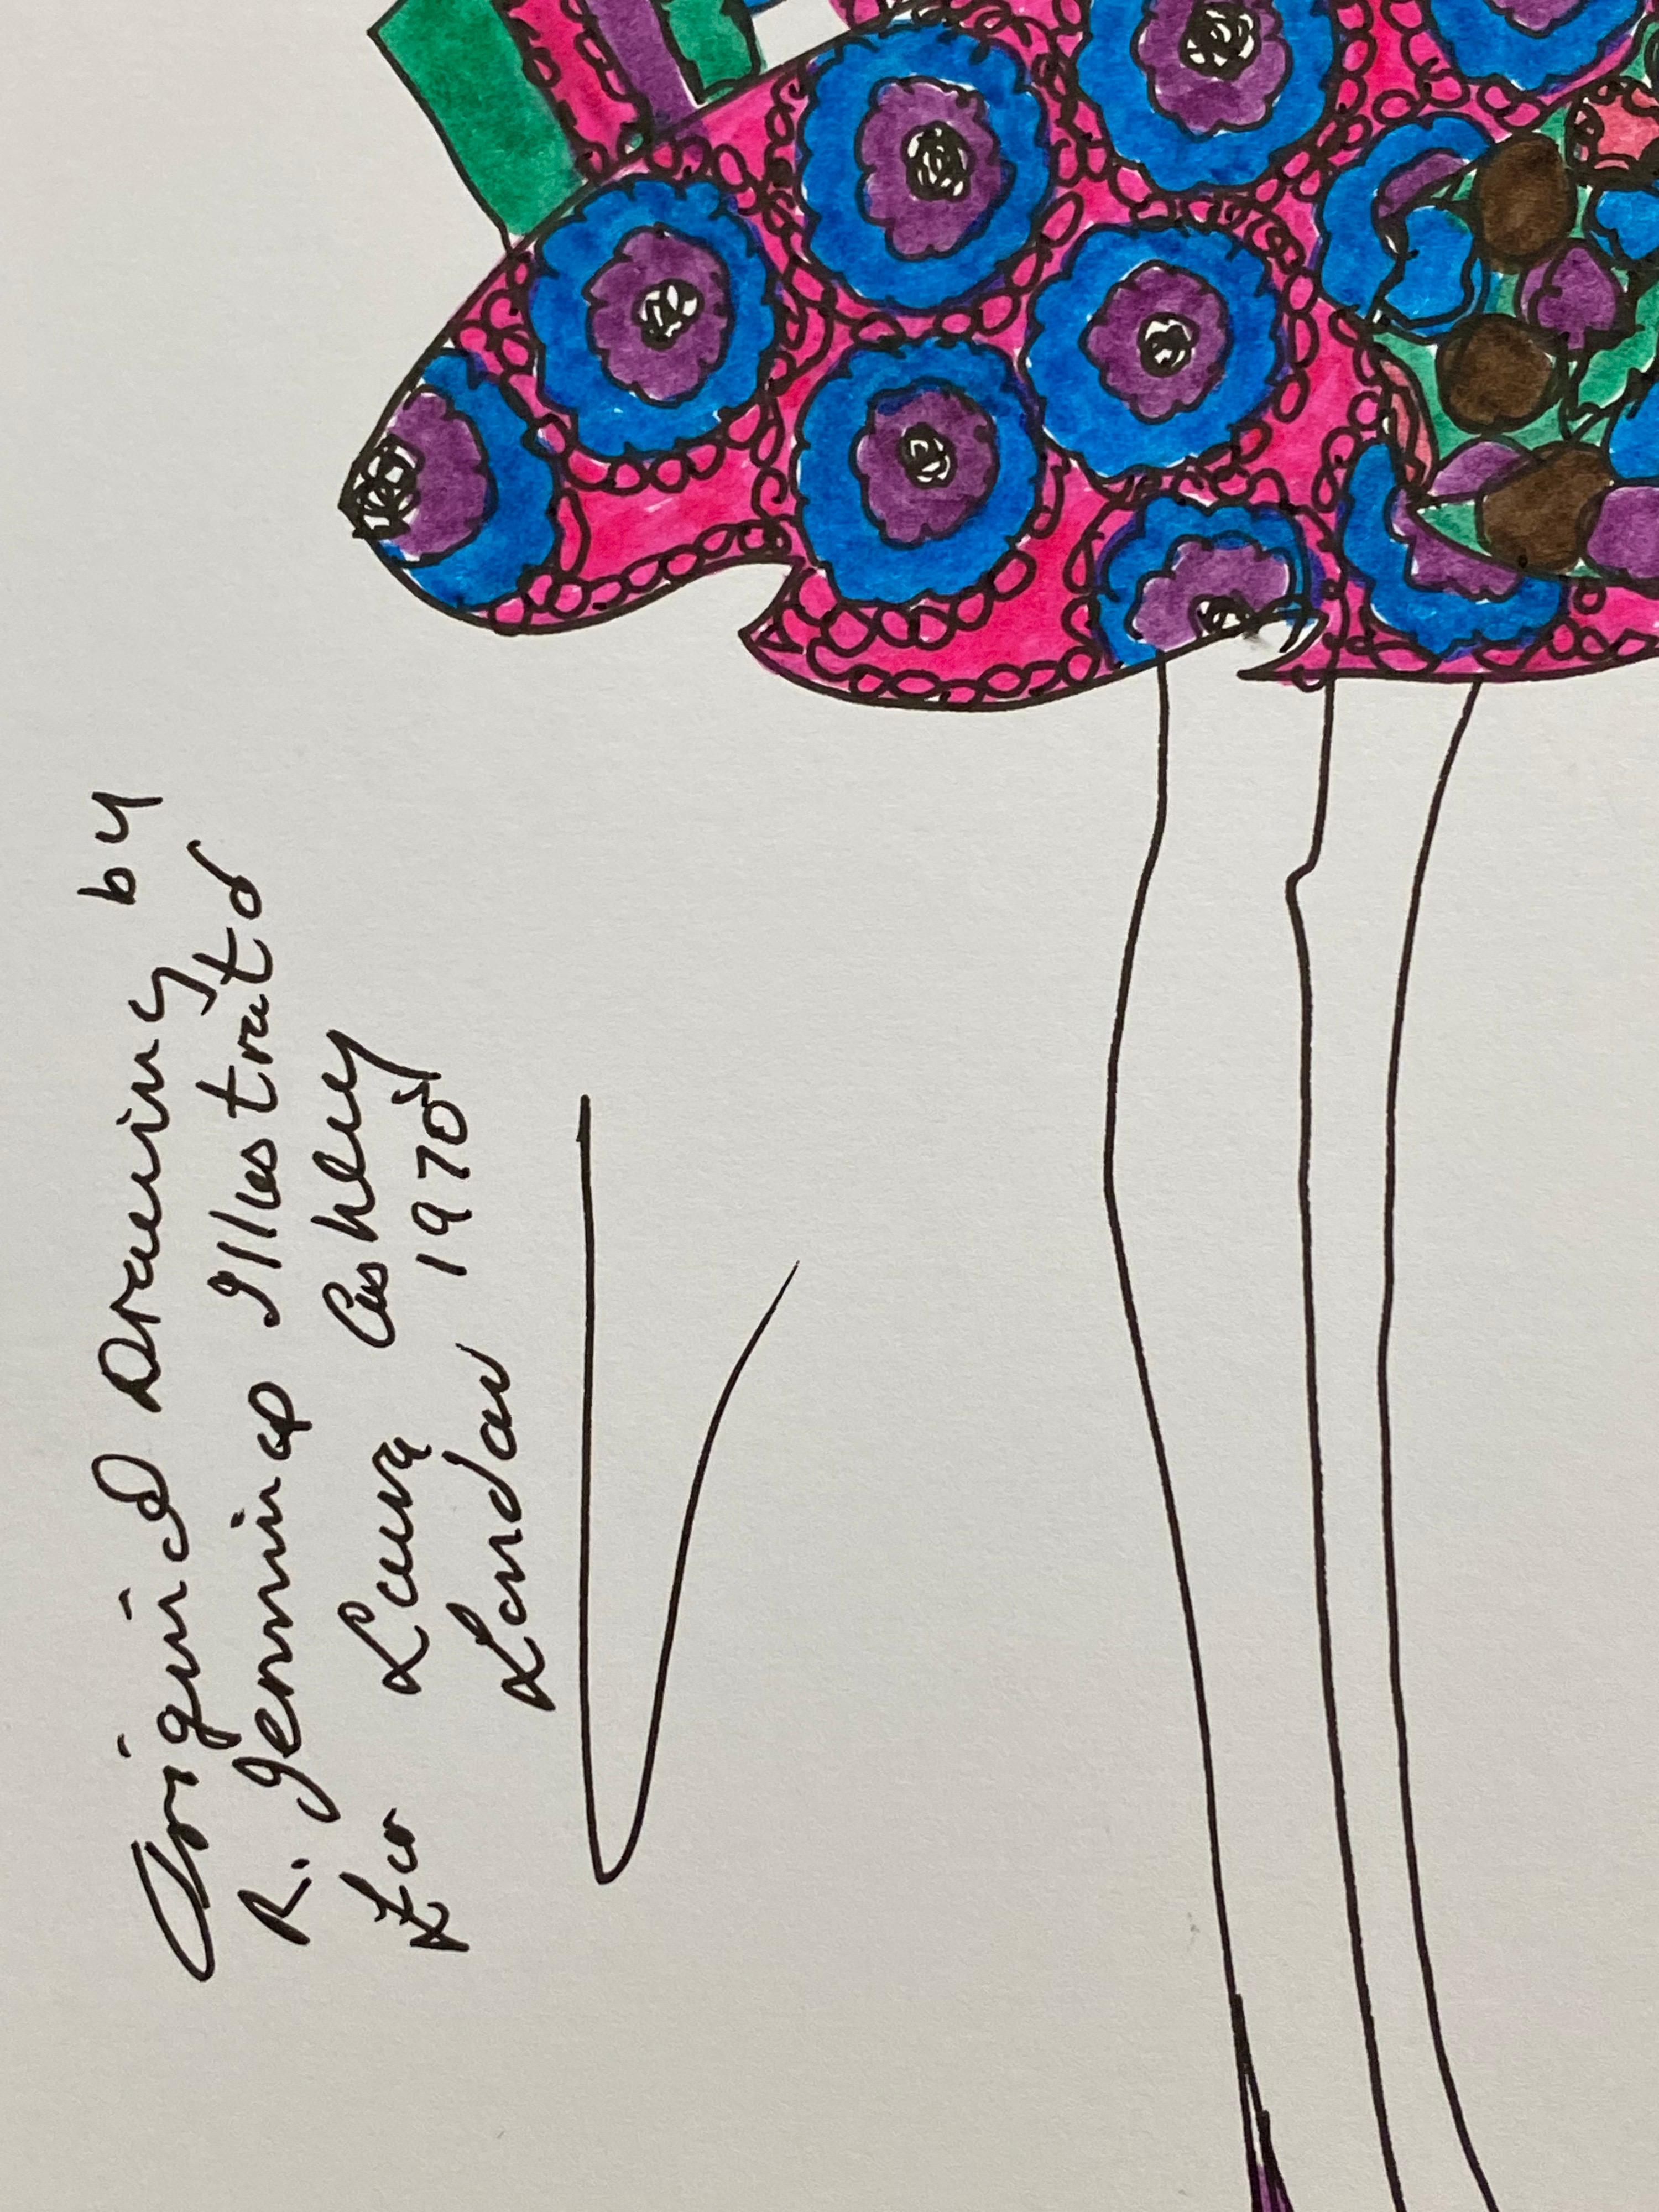 Original Drawing by
R. Jennings Illustrator
For Laura Ashley
London 1970s